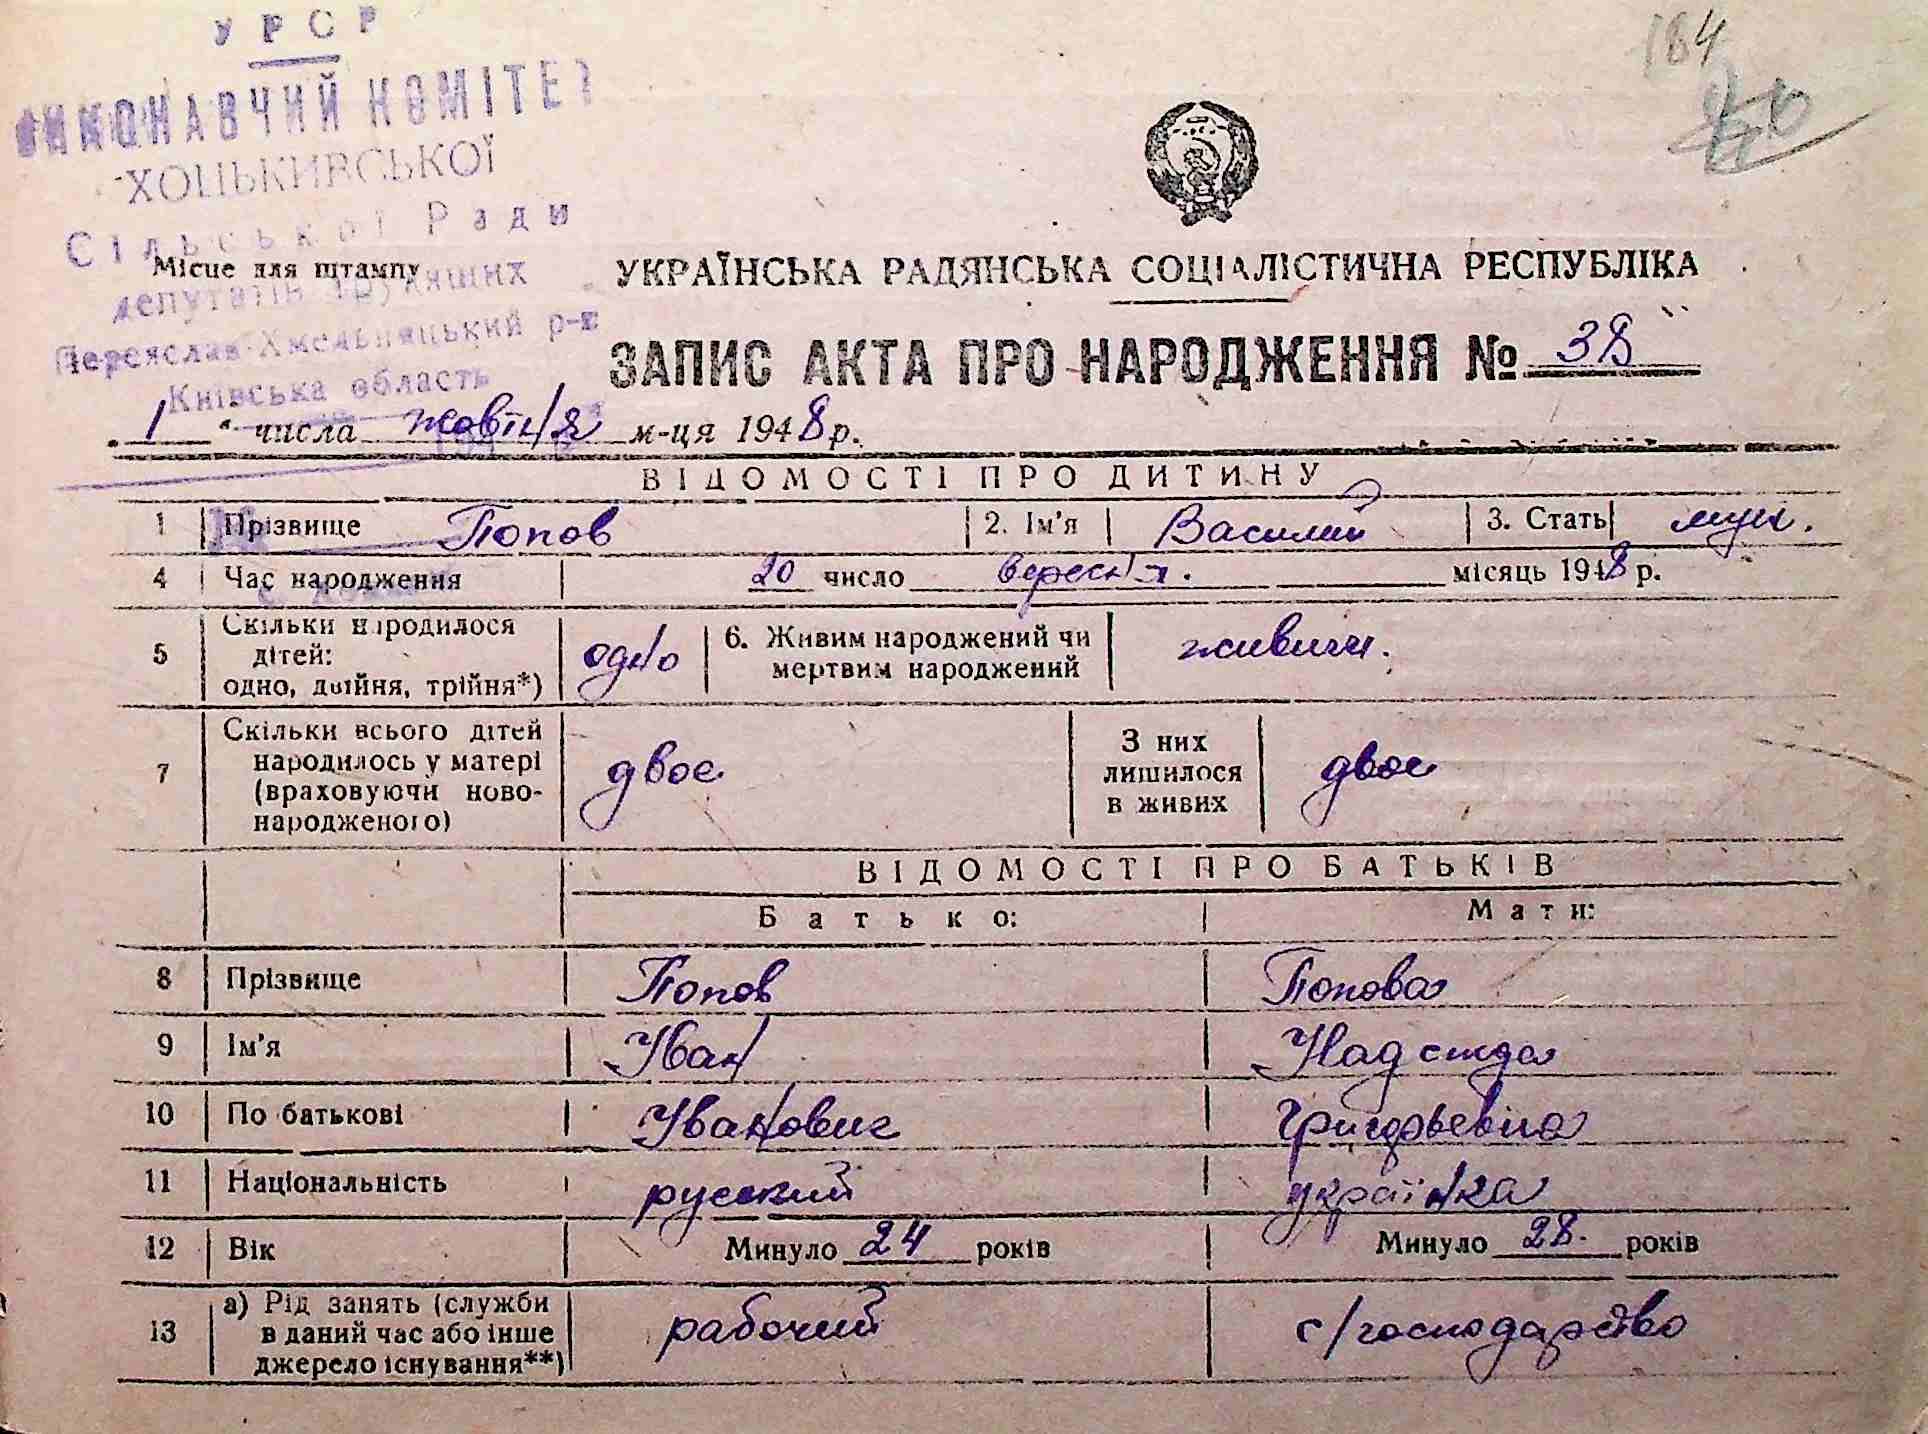 УРСР
ВИКОНАВЧИЙ КОМІТЕТ
ХОЦЬКИВСЬКОЇ
Сільської Ради
депутатів трудящих
Переяслав-Хмельницький р-н
Київська область
Місце для штампу
184
УКРАЇНСЬКА РАДЯНСЬКА СОЦІАЛІСТИЧНА РЕСПУБЛІКА
ЗАПИС АКТА ПРО НАРОДЖЕННЯ № 38
„1“ числа жовтня м-ця 1948 р.
ВІДОМОСТІ ПРО ДИТИНУ
1 Прізвище Попов 2. Ім'я Василий 3. Стать муж.
4 Час народження 20 число вересня. місяць 1948 р.
5 Скільки народилося дітей: одно, двійня, трійня*) одно 6. Живим народжений чи мертвим народжений живим.
7 Скільки всього дітей народилось у матері (враховуючи ново-народженого) двое З них лишилося в живих двое
ВІДОМОСТІ ПРО БАТЬКІВ
Батько: Мати:
8 Прізвище Попов Попова
9 Ім'я Иван Надежда
10 По батькові Иванович Григорьевна
11 Національність русский українка
12 Вік Минуло 24 років Минуло 28. років
13 а) Рід занять (служби в даний час або інше джерело існування**) рабочий с/господарство